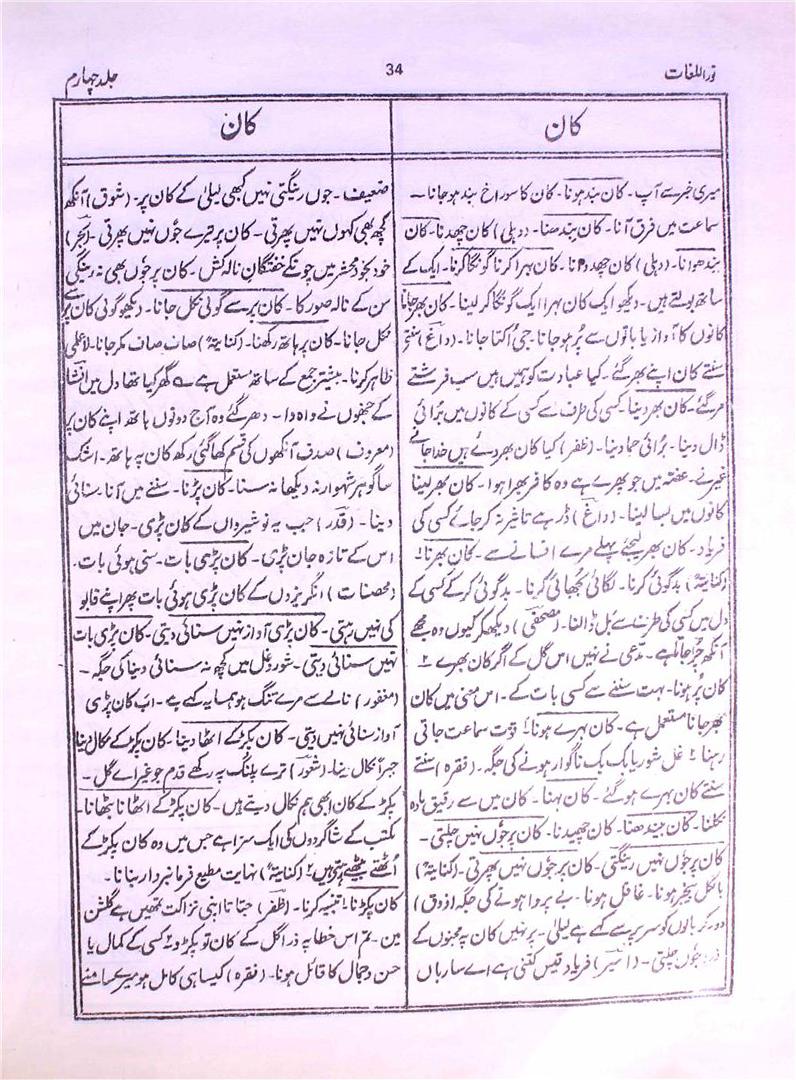 نوراللغات
34
جلد چہارم
کان
کان
میری خبر سے آپ۔ کان بند ہونا۔ کان کا سوراخ بند ہوجانا۔
سماعت میں فرق آنا۔ کان بندھنا۔ (دہلی) کان چھدنا۔ کان
بندھوانا۔ (دہلی) کان چھدوانا۔ کان بہرا کرنا گونگا کرنا۔ ایک کے
ساتھ بولتے ہیں۔ دیکھو ایک کان بہرا ایک گونگا کر لینا۔ کان بھر جانا
کانوں کا آواز یا باتوں سے پُر ہوجانا۔ جی اُکتا جانا۔ (داغ) سنتے
سنتے کان اپنے بھر گئے۔ کیا عبادت کو ہمیں ہیں سب فرشتے
مر گئے۔ کان بھر دینا۔ کسی کی طرف سے کسی کے کانوں میں بُرائی
ڈال دینا۔ بُرائی جما دینا۔ (ظفر) کیا کان بھر دئے ہیں خدا جانے
غیر نے۔ غصّہ میں جو بھرے ہے وہ کافر بھرا ہوا۔ کان بھر لینا
کانوں میں بسا لینا۔ (داغ) ڈر ہے تاثیر نہ کر جائے کسی کی
فریاد۔ کان بھر لیجئے پہلے مرے افسانے سے۔ کان بھرنا۔ ۱
(کنایۃً) بدگوئی کرنا۔ لگائی بُجھائی کرنا۔ بدگوئی کرکے کسی کے
دل میں کسی کی طرف سے بل ڈالنا۔ (مصحفی) دیکھ کر کیوں وہ مجھے
آنکھ چُرا جاتا ہے۔ مدّعی نے نہیں اس گل کے اگر کان بھرے ۲
کان پُر ہونا۔ بہت سننے سے کسی بات کے۔ اس معنی میں کان
بھر جانا مستعمل ہے۔ کان بہرے ہونا۔ ۱ قوّت سماعت جاتی
رہنا ۲ غل شور یا بک بک ناگوار ہونے کی جگہ۔ (فقرہ) سنتے
سنتے کان بہرے ہو گئے۔ کان بہنا۔ کان میں سے رقیق مادہ
نکلنا۔ کان بندھنا۔ کان چھیدنا۔ کان پر جُوں نہیں چلتی۔
کان پر جُوں نہیں رینگتی۔ کان پر جُوں نہیں پھرتی۔ (کنایۃً)
بالکل بیخبر ہونا۔ غافل ہونا۔ بے پروا ہونے کی جگہ (ذوق)
دور کر بالوں کو سر پر سے کہے ہے لیلیٰ۔ پر نہیں کان پہ مجنوں کے
ذرا جُوں چلتی۔ (اسیر) فریاد قیس کتنی ہے اے سارباں
ضعیف۔ جوں رینگتی نہیں کبھی لیلیٰ کے کان پر۔ (شوق) آنکھ
کچھ بھی کہوں نہیں پھرتی۔ کان پر تیرے جُوں نہیں پھرتی۔ (بحر)
خود بخود محشر میں چونکے خفتگانِ نالہ کش۔ کان پر جُوں بھی نہ رینگی
سن کے نالہ صور کا۔ کان پر سے گولی نکل جانا۔ دیکھو گولی کان پر سے
نکل جانا۔ کان پر ہاتھ رکھنا۔ (کنایۃً) صاف صاف مکر جانا۔ لاعلمی
ظاہر کرنا۔ بیشتر جمع کے ساتھ مستعمل ہے ؎ گھر کیا تھا دل میں انشا
کے جنھوں نے واہ وا۔ دھر گئے وہ آج دونوں ہاتھ اپنے کان پر
(معروف) صدف آنکھوں کی قسم کھا گئی رکھ کان پہ ہاتھ۔ اشک
سا گوہرِ شہوار نہ دیکھا نہ سنا۔ کان پڑنا۔ سننے میں آنا۔ سنائی
دینا۔ (قدر) جب یہ نوشیرواں کے کان پڑی۔ جان میں
اس کے تازہ جان پڑی۔ کان پڑی بات۔ سنی ہوئی بات۔
(محصنات) انگریزوں کے کان پڑی ہوئی بات پھر اپنے قابو
کی نہیں رہتی۔ کان پڑی آواز نہیں سنائی دیتی۔ کان پڑی بات
نہیں سنائی دیتی۔ شور و غل میں کچھ نہ سنائی دینا کی جگہ۔
(مغفور) نالے سے مرے تنگ ہو ہمسایہ کہے ہے۔ اب کان پڑی
آواز سنائی نہیں دیتی۔ کان پکڑ کے اٹھا دینا۔ کان پکڑ کے نکال دینا
جبراً نکال دینا۔ (شعور) ترے پلنگ پہ رکھے قدم جو غیر اے گل۔
پکڑ کے کان ابھی ہم نکال دیتے ہیں۔ کان پکڑ کے اٹھانا بٹھانا۔
مکتب کے شاگردوں کی ایک سزا ہے جس میں وہ کان پکڑ کے
اُٹھتے بیٹھتے رہتے ہیں ۲ (کنایۃً) نہایت مطیع فرمانبردار بنانا۔
کان پکڑنا ۱ تنبیہ کرنا۔ (ظفر) جتا تا اپنی نزاکت تمھیں ہے گلشن
میں۔ تم اس خطا پہ ذرا گل کے کان تو پکڑو ۲ کسی کے کمال یا
حسن و جمال کا قائل ہونا۔ (فقرہ) کیسا ہی کامل ہو میرے سامنے